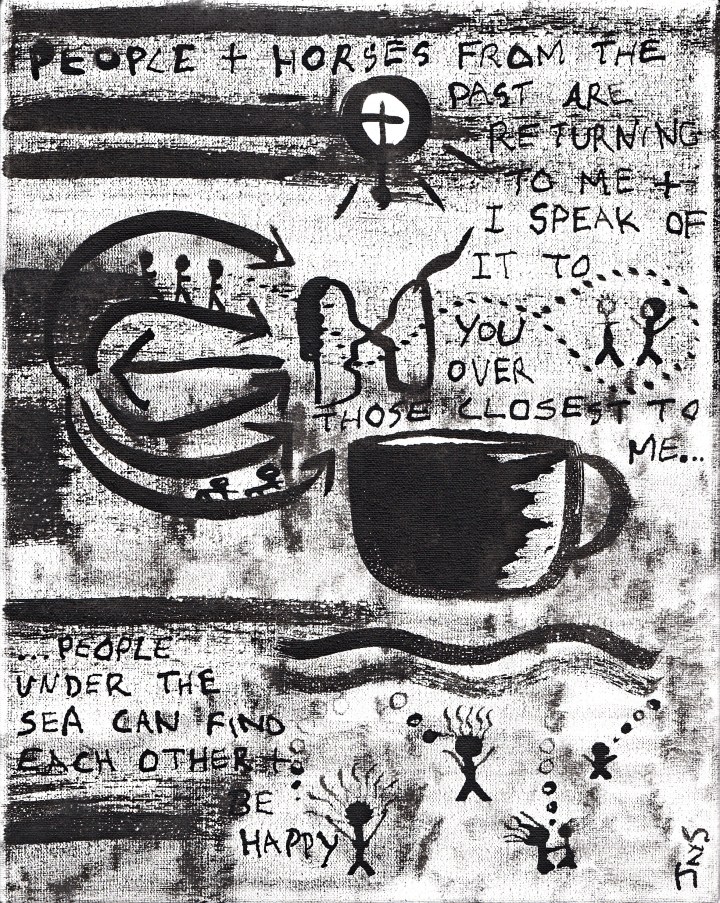 PEOPLE + HORSES FROM THE
PAST ARE
RETURNING
TO ME +
I SPEAK OF
IT TO
YOU
OVER
THOSE CLOSEST TO
ME...
...PEOPLE
UNDER THE
SEA CAN FIND
EACH OTHER +
BE
HAPPY
JNYS